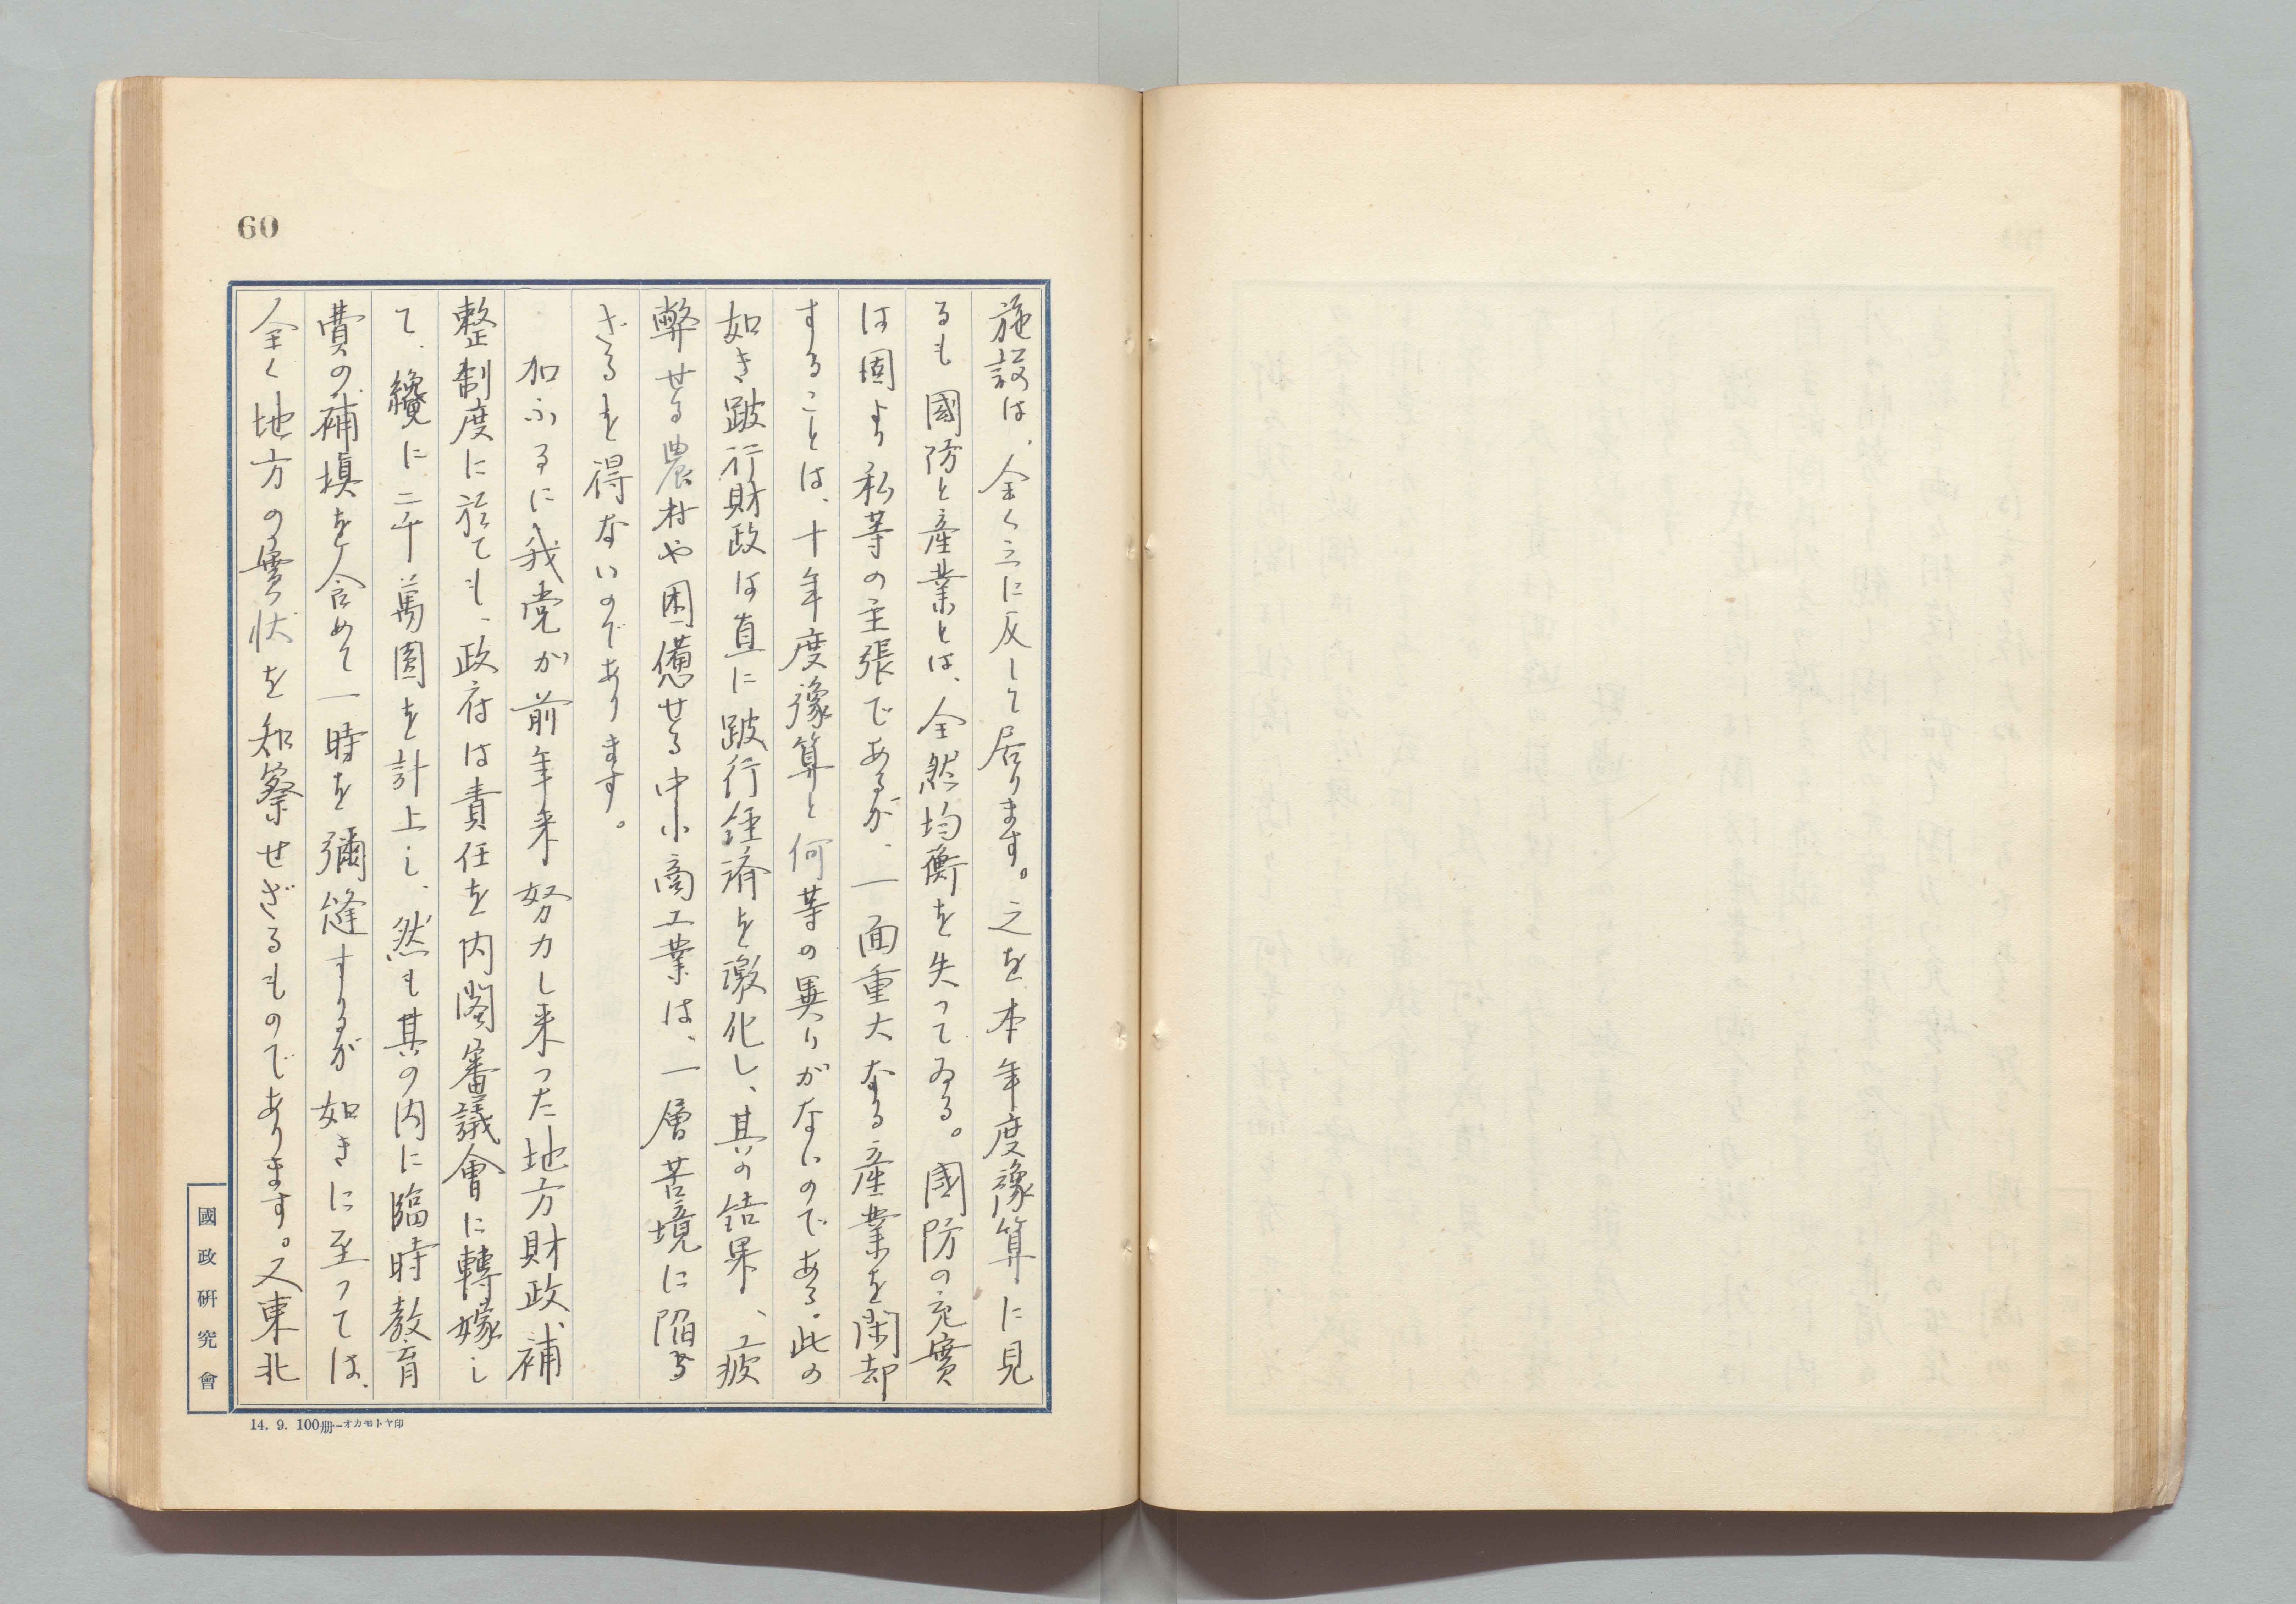 60
施設は、全く之に反して居ります。之を本年度豫算に見
るも國防と産業とは、全然均衡を失つてゐる。國防の充實
は固より私等の主張であるが、一面重大なる産業を閑却
することは、十年度豫算と何等の異りがないのである。此の
如き跛行財政は直に跛行経済を激化し、其の結果、疲
弊せる農村や困憊せる中小商工業は、一層苦境に陥ら
ざるを得ないのであります。
加ふるに我党が前年来努力し来つた地方財政補
整制度に於ても、政府は責任を内閣審議會に轉嫁し
て、纔に二千萬圓を計上し、然も其の内に臨時教育
費の補塡を含めて一時を彌縫するが如きに至つては、
全く地方の實状を知察せざるものであります。又東北
國政研究會
14. 9. 100冊—オカモトヤ印